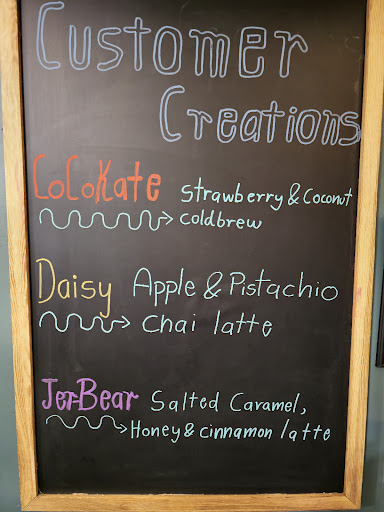 Customer
Creations
CoCoKate Strawberry & Coconut
coldbrew
Daisy Apple & Pistachio
Chai latte
Jer-Bear Salted Caramel,
Honey & cinnamon latte